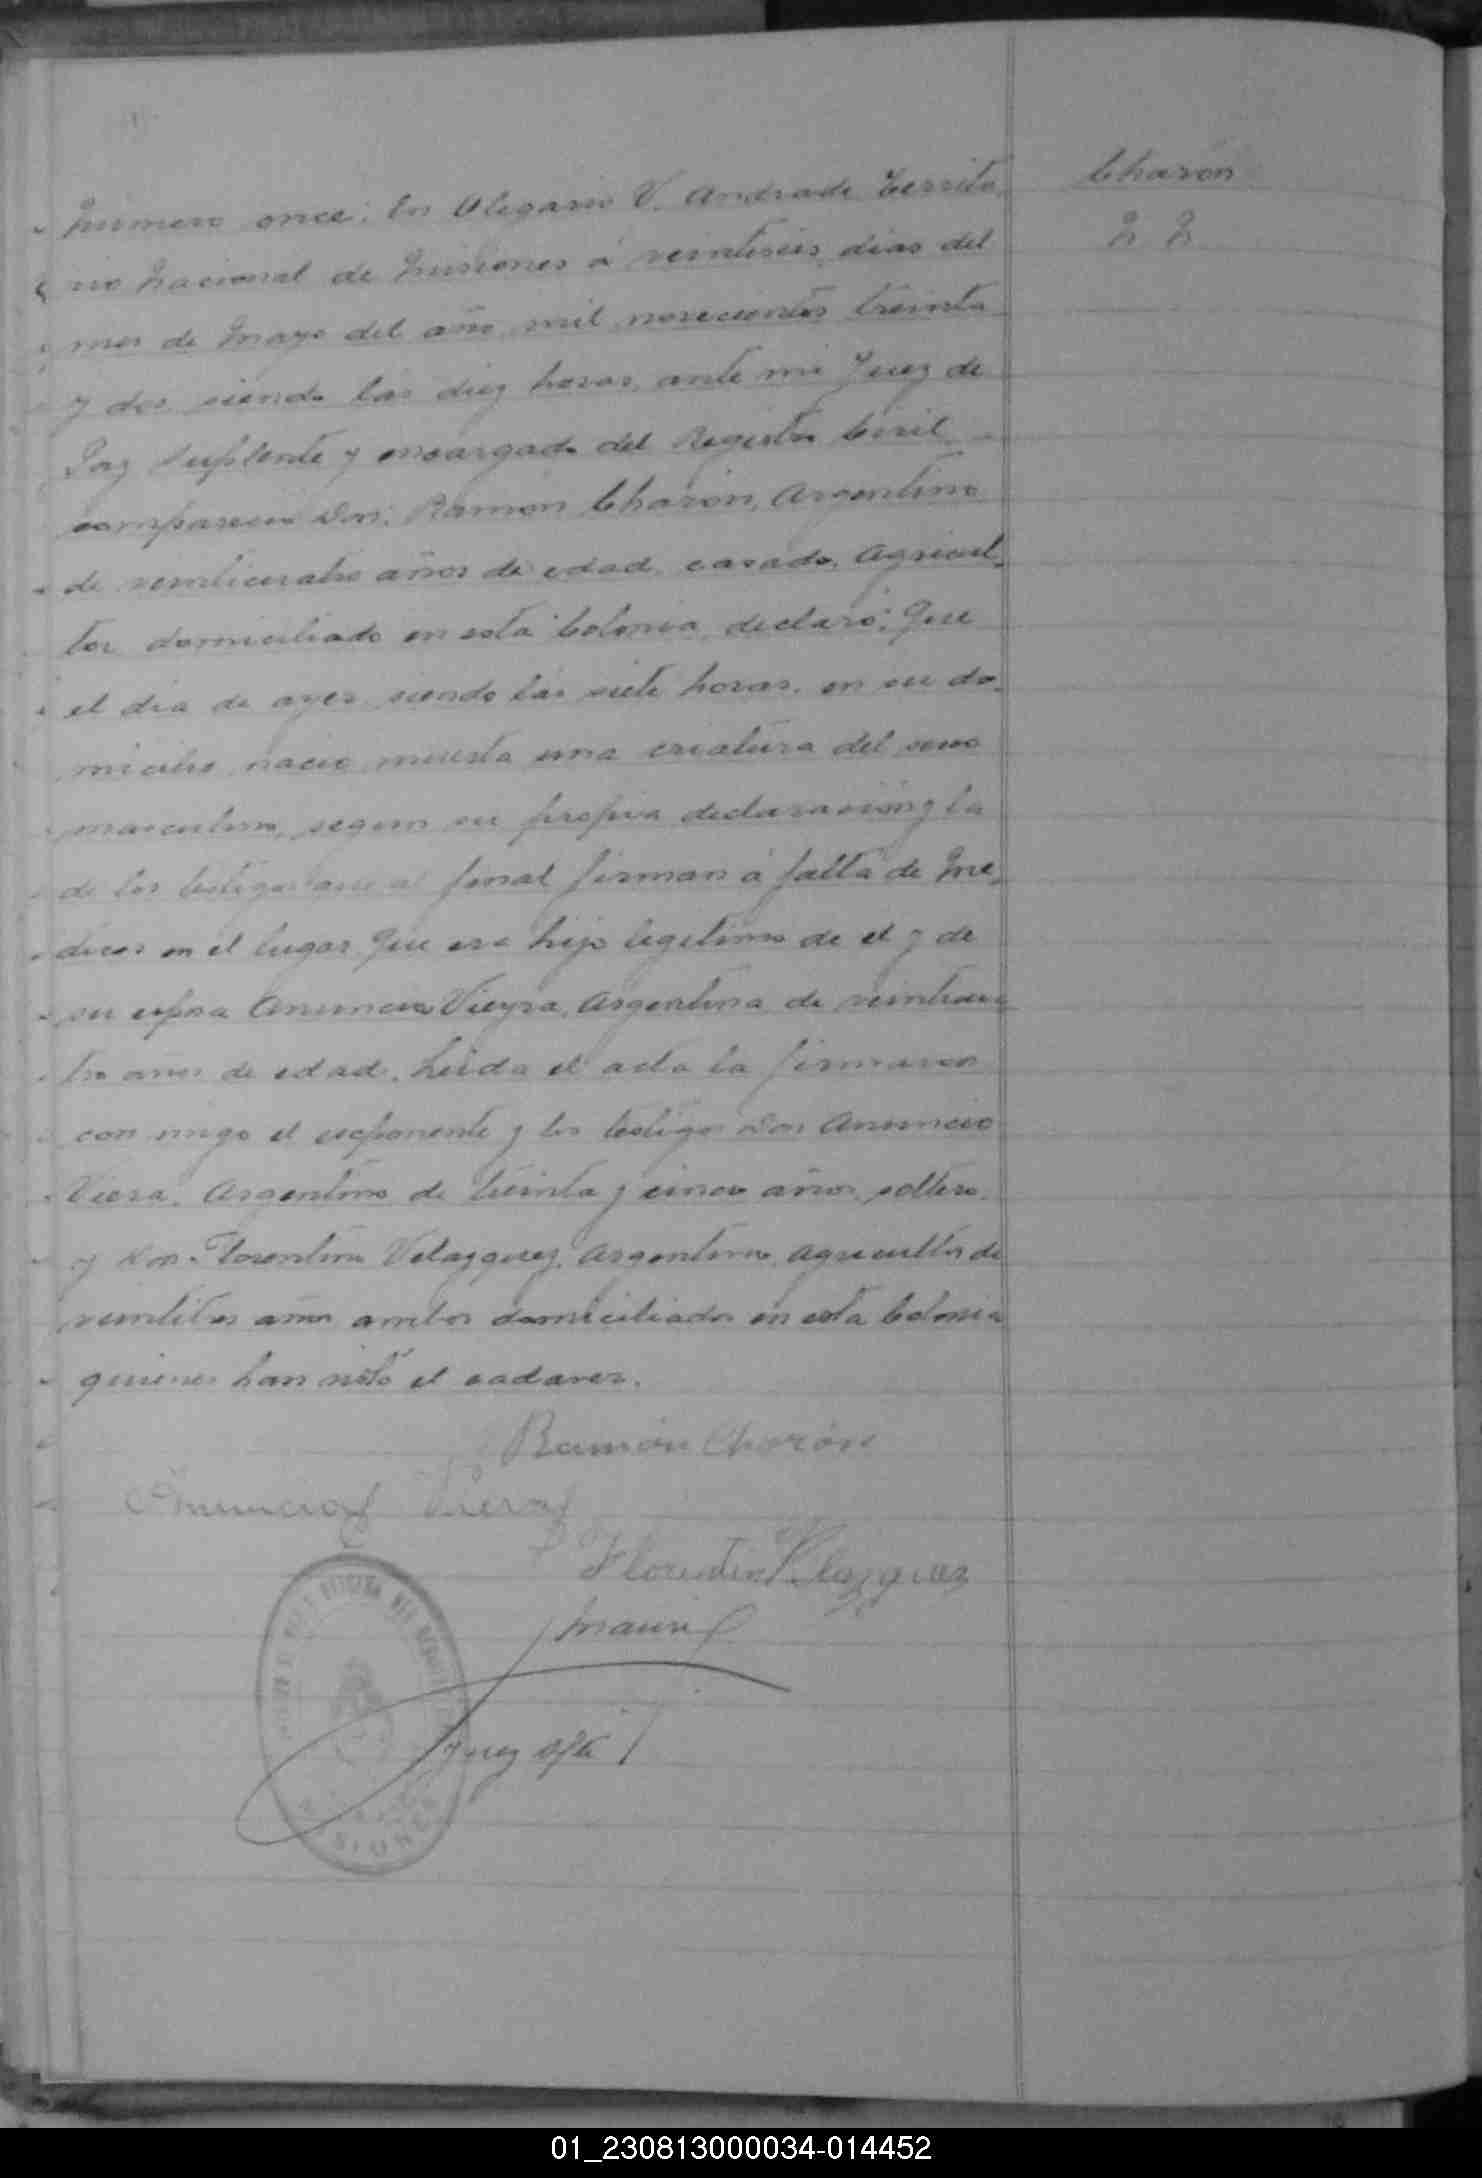 Charón
N N
Número once: En Olegario V. Andrade Territo
rio Nacional de Misiones á veintiseis dias del
mes de Mayo del año mil novecientos treinta
y dos siendo las diez horas, ante mi Juez de
Paz Suplente y encargado del Registro Civil
comparecio Don: Ramón Charón, Argentino
de veinticuatro años de edad, casado, Agricul-
tor domiciliado en esta Colonia, declaró: Que
el dia de ayer siendo las siete horas, en su do-
micilio, nacio muerta una criatura del sexo
masculino, segun su propia declaración y la
de los testigos que al final firman á falta de Me-
dicos en el lugar. Que era hijo legitimo de el y de
su esposa Anuncia Vieyra, Argentina de veinticua-
tro años de edad. Leida el acta la firmaron
con migo el exponente y los testigos Don Anuncio
Viera, Argentino de treinta y cinco años, soltero,
y Don Florentino Velazquez, Argentino, Agricultor de
veintitres años ambos domiciliados en esta Colonia
quienes han visto el cadaver.
Ramón Charón
Anuncio Viera
Florentin Velazquez
Juez Spte